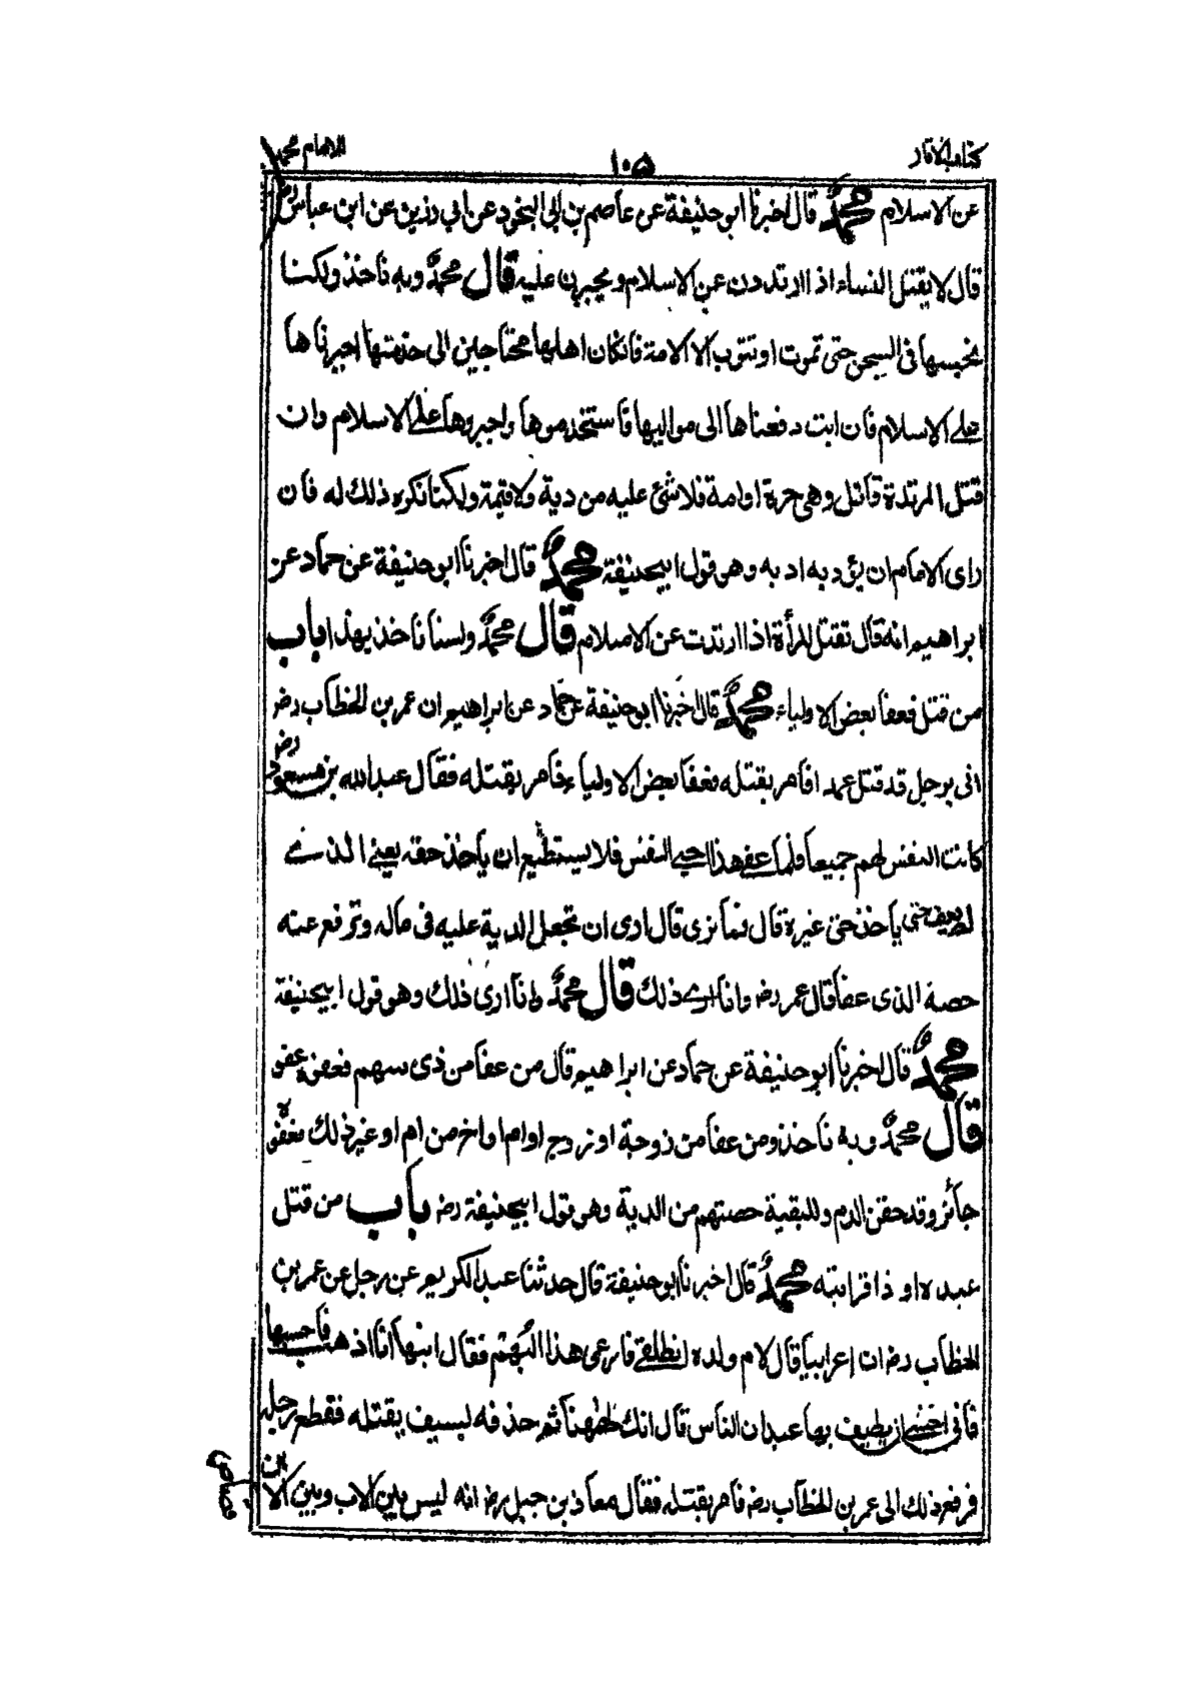 كتاب الآثار ١٠٥ للامام محمد
عن الاسلام محمد قال اخبرنا ابو حنيفة عن عاصم بن ابي النجود عن ابي رزين عن ابن عباس رض
قال لا يقتل النساء اذا ارتددن عن الاسلام ويجبرن عليه قال محمد وبه ناخذ ولكنا
نحبسها في السجن حتى تموت او تتوب الا الامة فان كان اهلها محتاجين الى خدمتها اجبرناها
على الاسلام فان ابت دفعناها الى مواليها فاستخدموها واجبروها على الاسلام وان
قتل المرتدة قاتل وهي حرة او امة فلا شئ عليه من دية ولا قيمة ولكنا نكره ذلك له فان
راى الامام ان يؤدبه ادبه وهو قول ابيحنيفة محمد قال اخبرنا ابو حنيفة عن حماد عن
ابراهيم انه قال تقتل المرأة اذا ارتدت عن الاسلام قال محمد ولسنا ناخذ بهذا باب
من قتل فعفا بعض الاولياء محمد قال اخبرنا ابو حنيفة عن حماد عن ابراهيم ان عمر بن الخطاب رض
اتى برجل قد قتل عمدا فامر بقتله فعفا بعض الاولياء فامر بقتله فقال عبد الله بن مسعود رض
كانت النفس لهم جميعا فلما عفى هذا احيى النفس فلا يستطيع ان ياخذ حقه يعني الذي
لم يعف حتى ياخذ حق غيره قال فما ترى قال ارى ان تجعل الدية عليه في ماله وترفع عنه
حصة الذى عفا قال عمر رض وانا ارى ذلك قال محمد وانا ارى ذلك وهو قول ابيحنيفة
محمد قال اخبرنا ابو حنيفة عن حماد عن ابراهيم قال من عفا من ذى سهم فعفوه عفو
قال محمد وبه ناخذ ومن عفا من زوجة او زوج او ام او اخ من ام او غير ذلك فعفوه
جائز وقد حقن الدم وللبقية حصتهم من الدية وهو قول ابيحنيفة رض باب من قتل
عبده او ذا قرابته محمد قال اخبرنا ابو حنيفة قال حدثنا عبد الكريم عن رجل عن عمر بن
الخطاب رض ان اعرابيا قال لام ولده انطلقي فارعى هذا البهم فقال ابنها انا اذهب فاحبسها
فاني اخشى ان يطيف بها عبدان الناس قال انك لههنا ثم حذفه بسيف يقتله فقطع رجله
فرفع ذلك الى عمر بن الخطاب رض فامر بقتله فقال معاذ بن جبل رض انه ليس بين الاب وبين الابن
قصاص